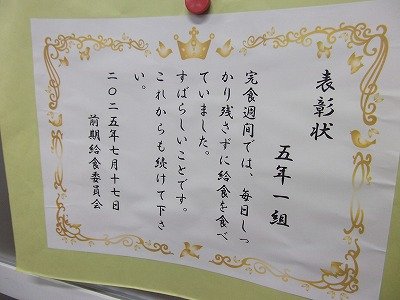 表彰状
五年一組
完食週間では、毎日しっ
かり残さずに給食を食べ
ていました。
すばらしいことです。
これからも続けて下さ
い。
二〇二五年七月十七日
前期給食委員会